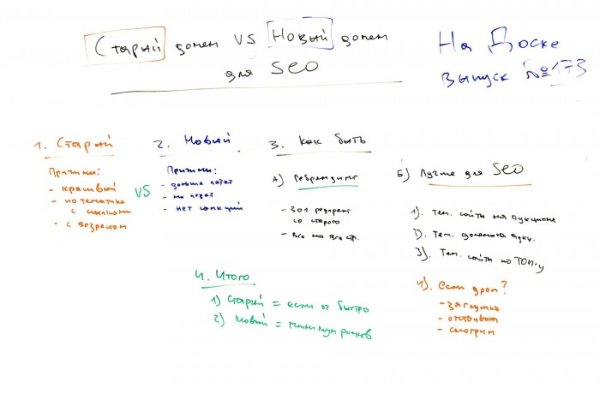 Старый домен VS Новый домен
для SEO
На Доске
выпуск №173
1. Старый
Причины:
- красивый
- по тематике
с ссылками
- с возрастом
VS
2. Новый
Причины:
- дольше
- не
- нет санкций
3. Как быть
А) Ребрендинг
- 301 редирект
со старого
- Все на все стр.
Б) Лучше для SEO
1). Тем. сайты на аукционе
2). Тем. домена аукц.
3). Тем. сайты по ТОП-у
4). если дроп?
- заглушка
- отстаивать
- смотрим
4. Итого
1) Старый = если ок быстро
2) Новый = минимум рисков